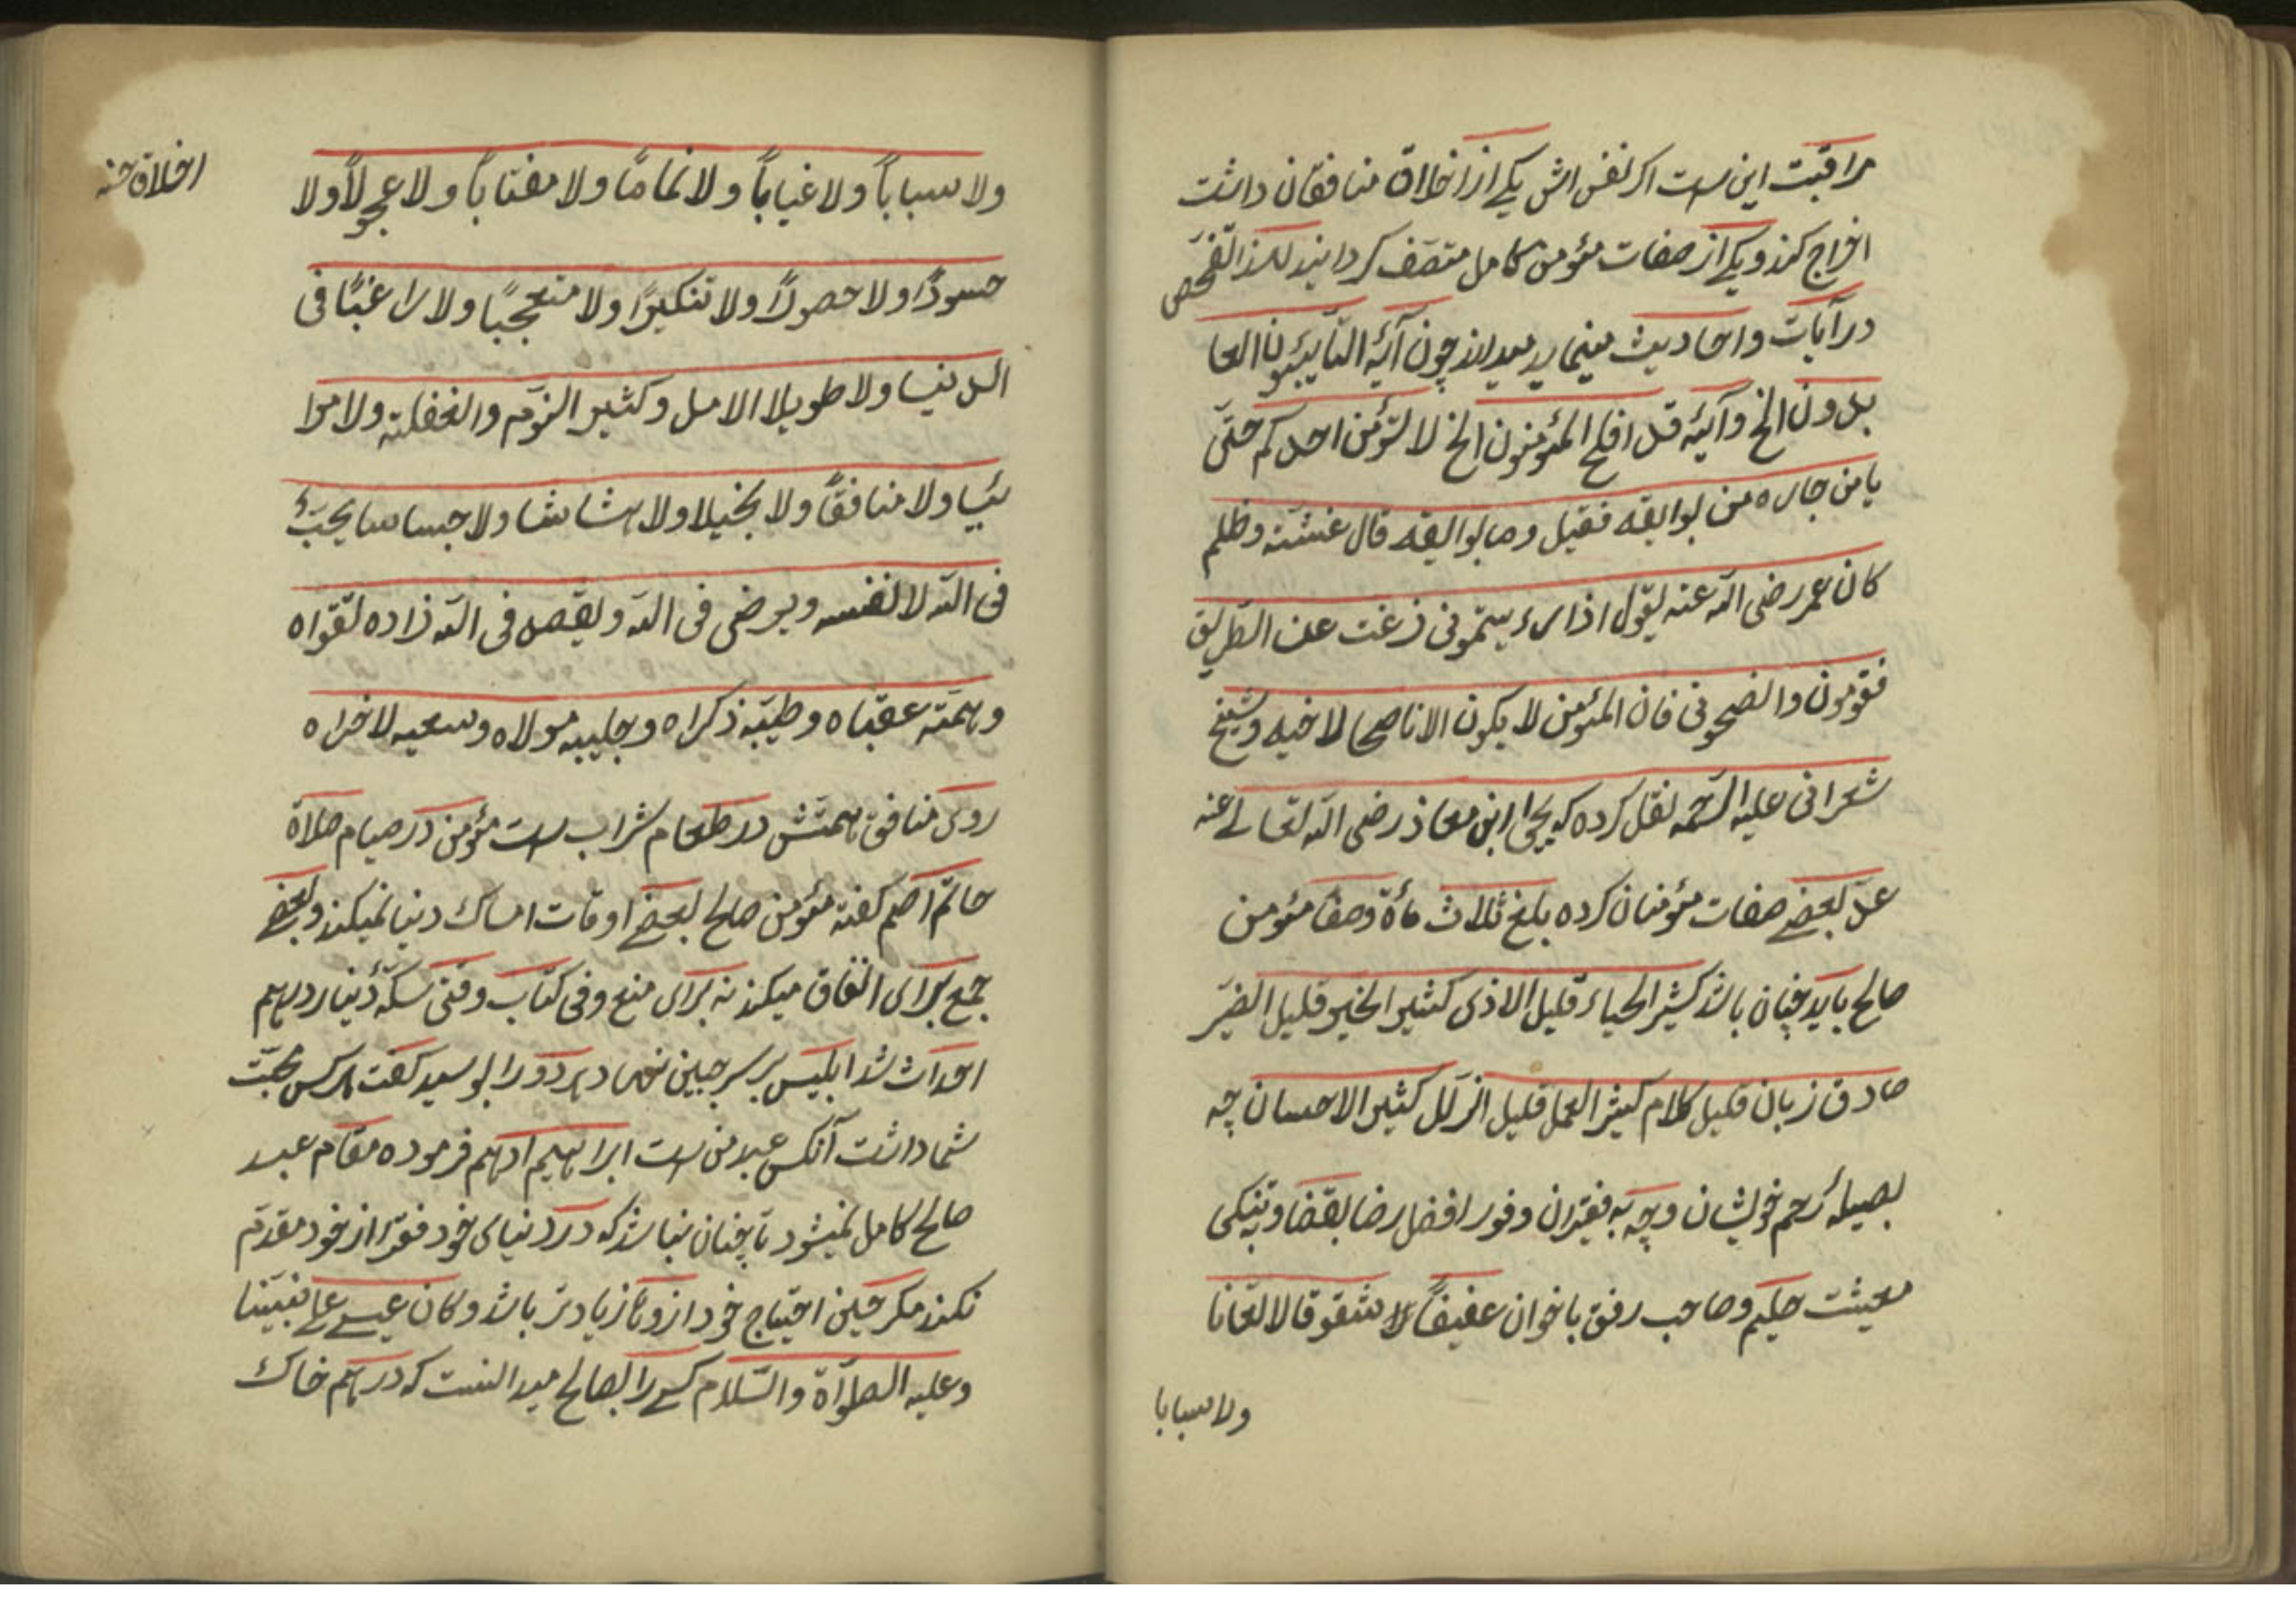 مراقبت این ست اکر نفس اش یکے از اخلاق منافقان داشت
اخراج کند ویکے از صفات مؤمن کامل متصف کرداند التفحص
در آیات واحادیث مینماید چون آیۀ التّایٔبون العا
بدون الخ وآیۀ قد افلح المؤمنون الخ لا لتؤمن احدکم حتّی
یامن جاره من بوایقه فقیل وما بوایقه قال غشّه وظلم
کان عمر رضی اللّه عنه یقول اذا رءیتمونی زغت عن الطریق
فقومون وانصحونی فان المئومن لا یکون الا ناصحا لاخیه وشیخ
شعرانی علیه الرّحمه نقل کرده که یحیی ابن معاذ رضی اللّه تعالے عنه
عدّ بعضے صفات مؤمنان کرده بلغ ثلاث مأة وصفا مؤمن
صالح باید چنان باشد کثیر الحیاء قلیل الاذی کثیر الخیر قلیل الضیّر
صادق زبان قلیل کلام کیثر العمل قلیل الزلل کثیر الاحسان چه
بصیلۀ رحم خویشان وچه به فقیران وفور افضل رضا بقضا وتنکی
معیشت حلیم وصاحب رفق باخوان عفیفاً لا شقوقا لا لعّانا
ولا سبابا
اخلاق حسنه
ولا سباباً ولا غیاباً ولا نماماً ولا مغتاباً ولا عجولاً ولا
حسودًا ولا حصودًا ولا تنکیرًا ولا متعجبًا ولا راغبًا فی
الدنیا ولا طویلا الامل وکثیر النوّم والغفلته ولا مرا
ئیا ولا منافقاً ولا بخیلا ولا بشاشا ولا جساسا یحبّ
فی اللّه لا لنفسه ویرضی فی اللّه ویقصد فی اللّه زاده تقواه
وهمّته عقباه وطیبّه ذکراه وجلیبه مولاه وسعیه لاخراه
روی منافق همتش در طعام شراب ست مؤمن در صیام صلاة
حاتم اصم کفته مؤمن صالح بعضے اوقات امساک دنیا نمیکند وبعضے
جمع برای انفاق میکند نه برای منع وفی کتاب وقتی سکۀ دنیار درهم
احداث شد ابلیس بر سر جبین نهاد بر دو را بوسید کفت هرکس محبّت
شما داشت آنکس عبد من ست ابراهیم ادهم فرموده مقام عبد
صالح کامل نمیشود تا چنان نباشد که در دنیای خود فقرا از خود مقدّم
نکند مکر حین احتیاج خود از ونا زیادتر باشد وکان عیسے علے نبیّنا
وعلیه الصلوآة والسّلام کسے را بصالح میدانست که درهم خاک